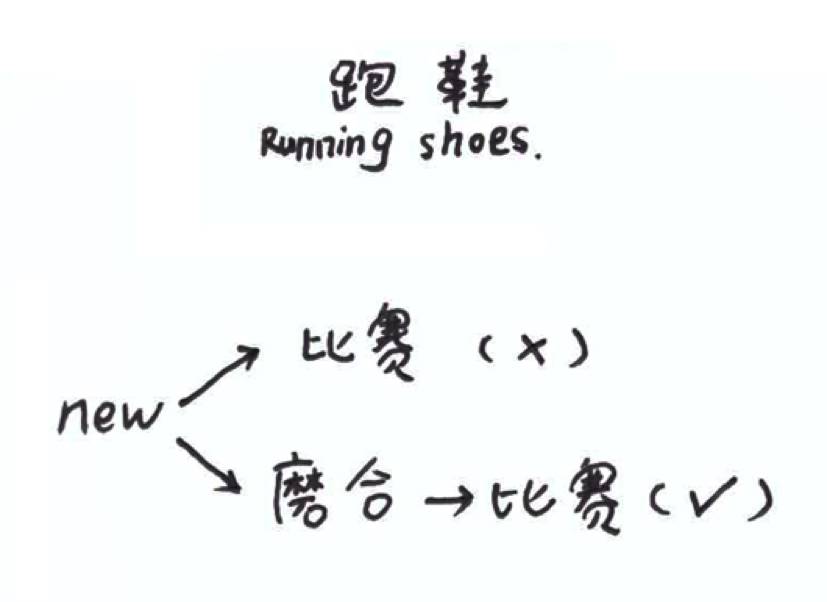 跑鞋
Running shoes.
比赛 (×)
new
磨合→比赛(✓)